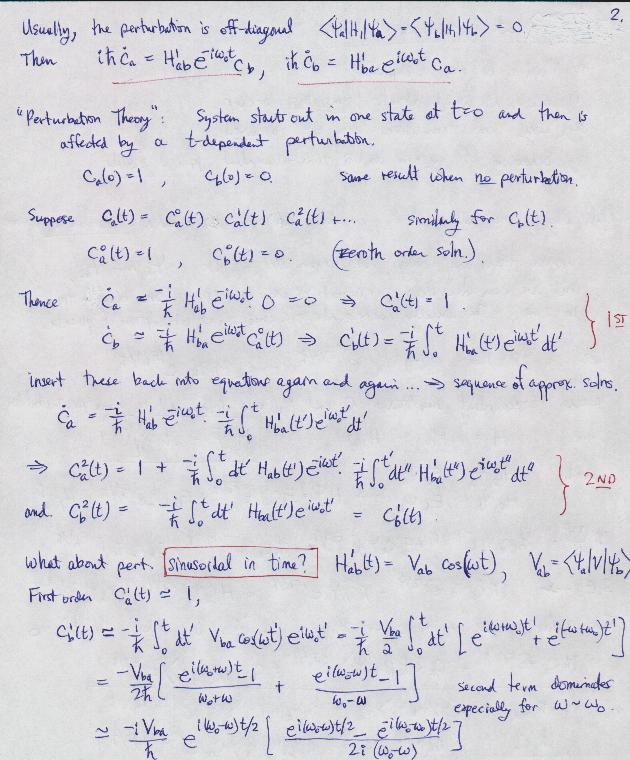 2.
Usually, the perturbation is off-diagonal ⟨ψa|H₁|ψa⟩ = ⟨ψb|H₁|ψb⟩ = 0.
Then iħ ċa = H'ab e^{-iω₀t} cb, iħ ċb = H'ba e^{iω₀t} ca.
"Perturbation Theory": System starts out in one state at t=0 and then is
affected by a t-dependent perturbation.
Ca(0) = 1, Cb(0) = 0. same result when no perturbation.
Suppose Ca(t) = Ca⁰(t) Ca¹(t) Ca²(t) + ... similarly for Cb(t).
Ca⁰(t) = 1, Cb⁰(t) = 0. (zeroth order soln.)
Thence Ċa = -i/ħ H'ab e^{-iω₀t} 0 = 0 ⇒ Ca¹(t) = 1.
Ċb ≃ -i/ħ H'ba e^{iω₀t} Ca⁰(t) ⇒ Cb¹(t) = -i/ħ ∫₀ᵗ H'ba(t') e^{iω₀t'} dt'
1ST
insert these back into equations again and again... → sequence of approx. solns.
Ċa = -i/ħ H'ab e^{-iω₀t} · -i/ħ ∫₀ᵗ H'ba(t') e^{iω₀t'} dt'
⇒ Ca²(t) = 1 + -i/ħ ∫₀ᵗ dt' Hab(t') e^{-iω₀t'} · -i/ħ ∫₀^{t'} dt'' H'ba(t'') e^{iω₀t''} dt''
and. Cb²(t) = -i/ħ ∫₀ᵗ dt' Hba(t') e^{iω₀t'} = Cb¹(t)
2ND
What about pert. sinusoidal in time? H'ab(t) = Vab cos(ωt), Vab = ⟨ψa|V|ψb⟩
First order Ca¹(t) ≃ 1,
Cb¹(t) ≃ -i/ħ ∫₀ᵗ dt' Vba cos(ωt') e^{iω₀t'} = -i/ħ Vba/2 ∫₀ᵗ dt' [e^{i(ω+ω₀)t'} + e^{i(-ω+ω₀)t'}]
= -Vba/2ħ [ (e^{i(ω₀+ω)t} - 1)/(ω₀+ω) + (e^{i(ω₀-ω)t} - 1)/(ω₀-ω) ] second term dominates
especially for ω ~ ω₀.
≃ -iVba/ħ e^{i(ω₀-ω)t/2} [ (e^{i(ω₀-ω)t/2} - e^{-i(ω₀-ω)t/2})/(2i(ω₀-ω)) ]